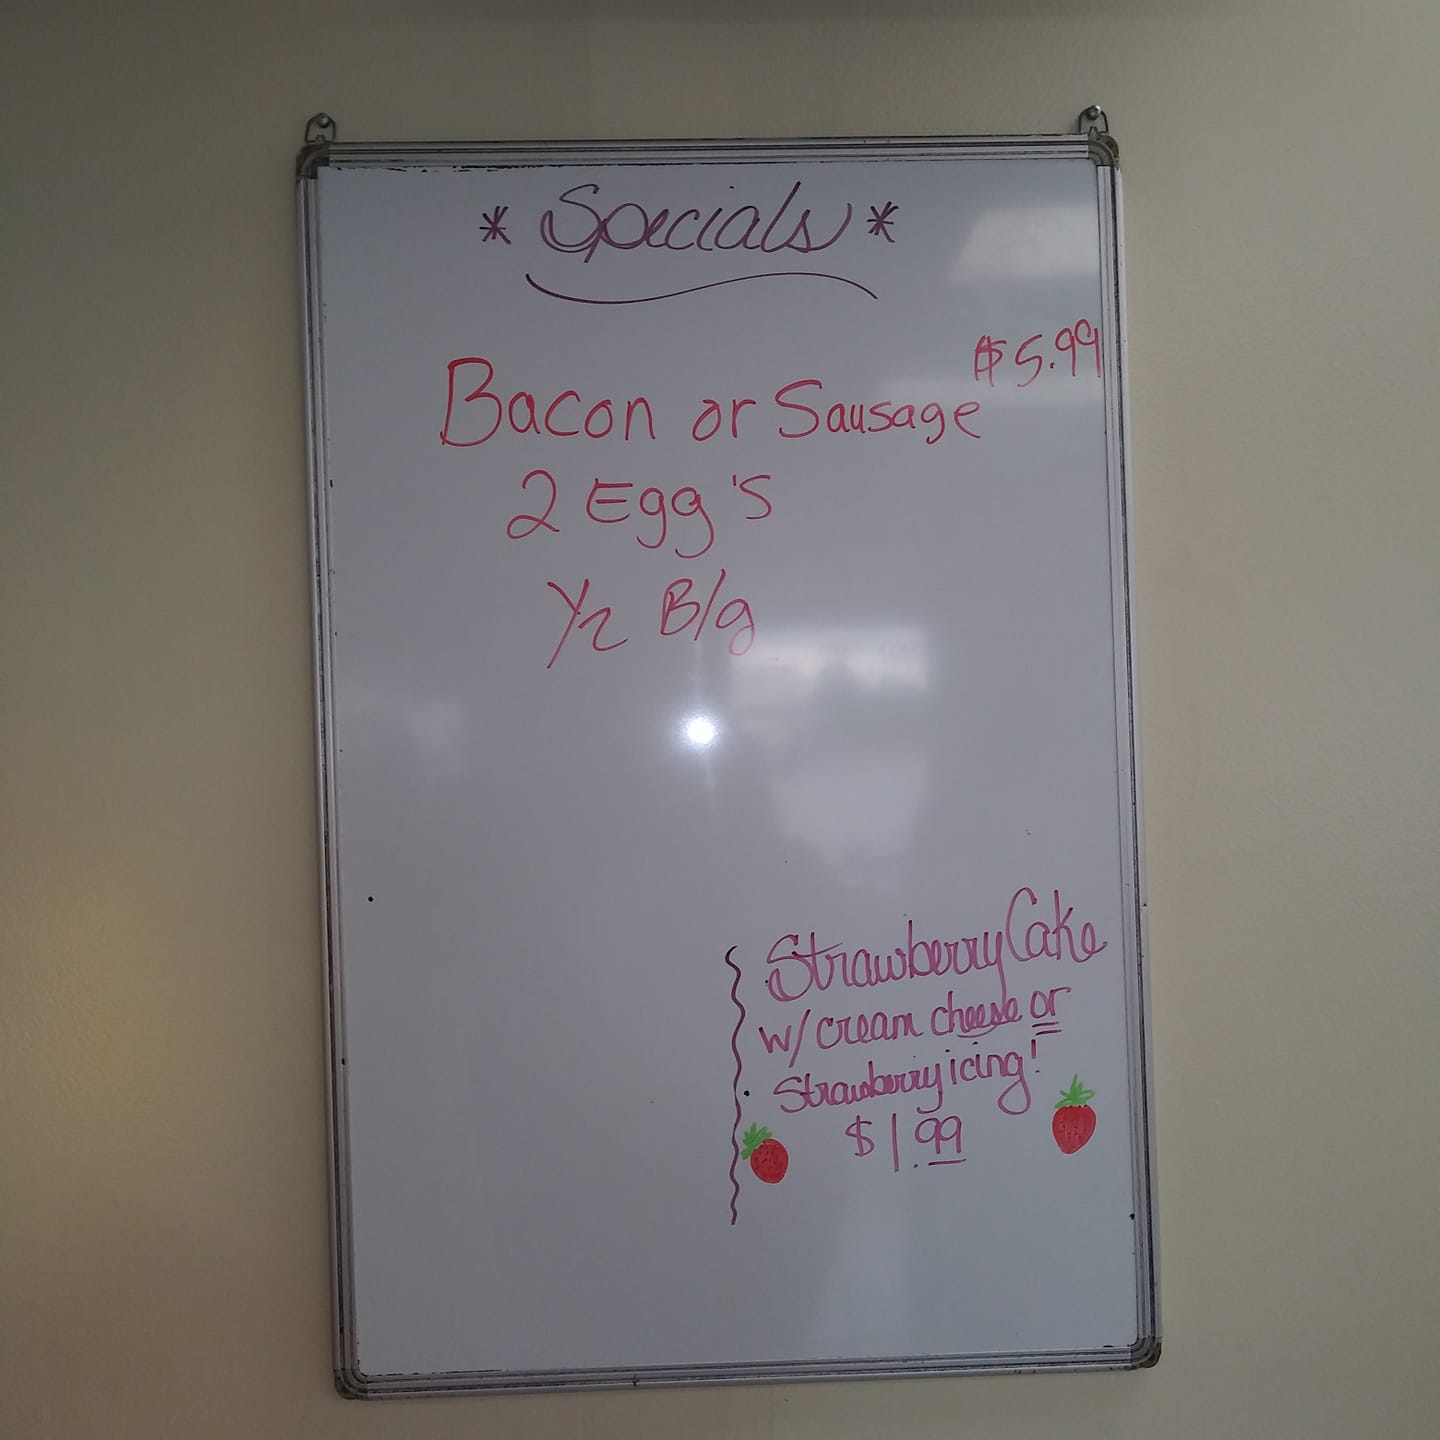 * Specials *
$5.99
Bacon or Sausage
2 Egg's
1/2 B/g
Strawberry Cake
w/ cream cheese or
Strawberry icing!
$1.99